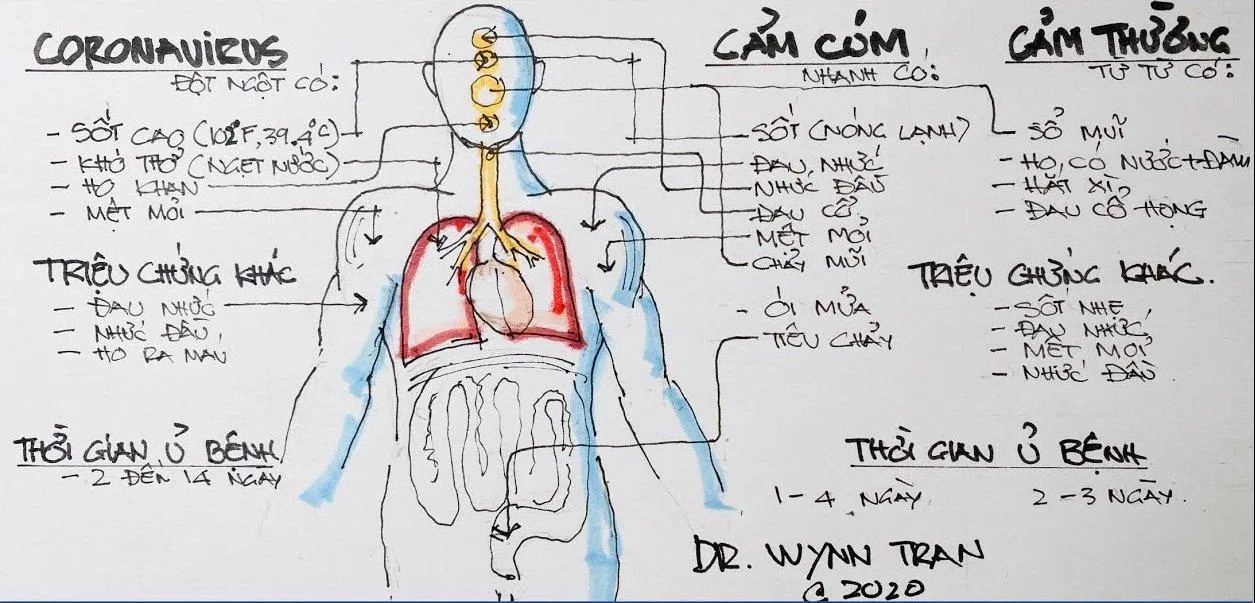 CORONAVIRUS
ĐỘT NGỘT CÓ:
- SỐT CAO (102°F, 39.4°C)
- KHÓ THỞ (NGẸT NƯỚC)
- HO KHAN
- MỆT MỎI
TRIỆU CHỨNG KHÁC
- ĐAU NHỨC
- NHỨC ĐẦU,
- HO RA MAU
THỜI GIAN Ủ BỆNH
- 2 ĐẾN 14 NGÀY
CẢM CÚM
NHANH CÓ:
- SỐT (NÓNG LẠNH)
- ĐAU NHỨC
- NHỨC ĐẦU
- ĐAU CỔ
- MỆT MỎI
- CHẢY MŨI
- ÓI MỬA
- TIÊU CHẢY
CẢM THƯỜNG
TỪ TỪ CÓ:
- SỔ MŨI
- HO, CÓ NƯỚC + ĐÀM
- HẮT XÌ
- ĐAU CỔ HỌNG
TRIỆU CHỨNG KHÁC.
- SỐT NHẸ
- ĐAU NHỨC
- MỆT MỎI
- NHỨC ĐẦU
THỜI GIAN Ủ BỆNH
1-4 NGÀY
2-3 NGÀY.
DR. WYNN TRAN
@ 2020